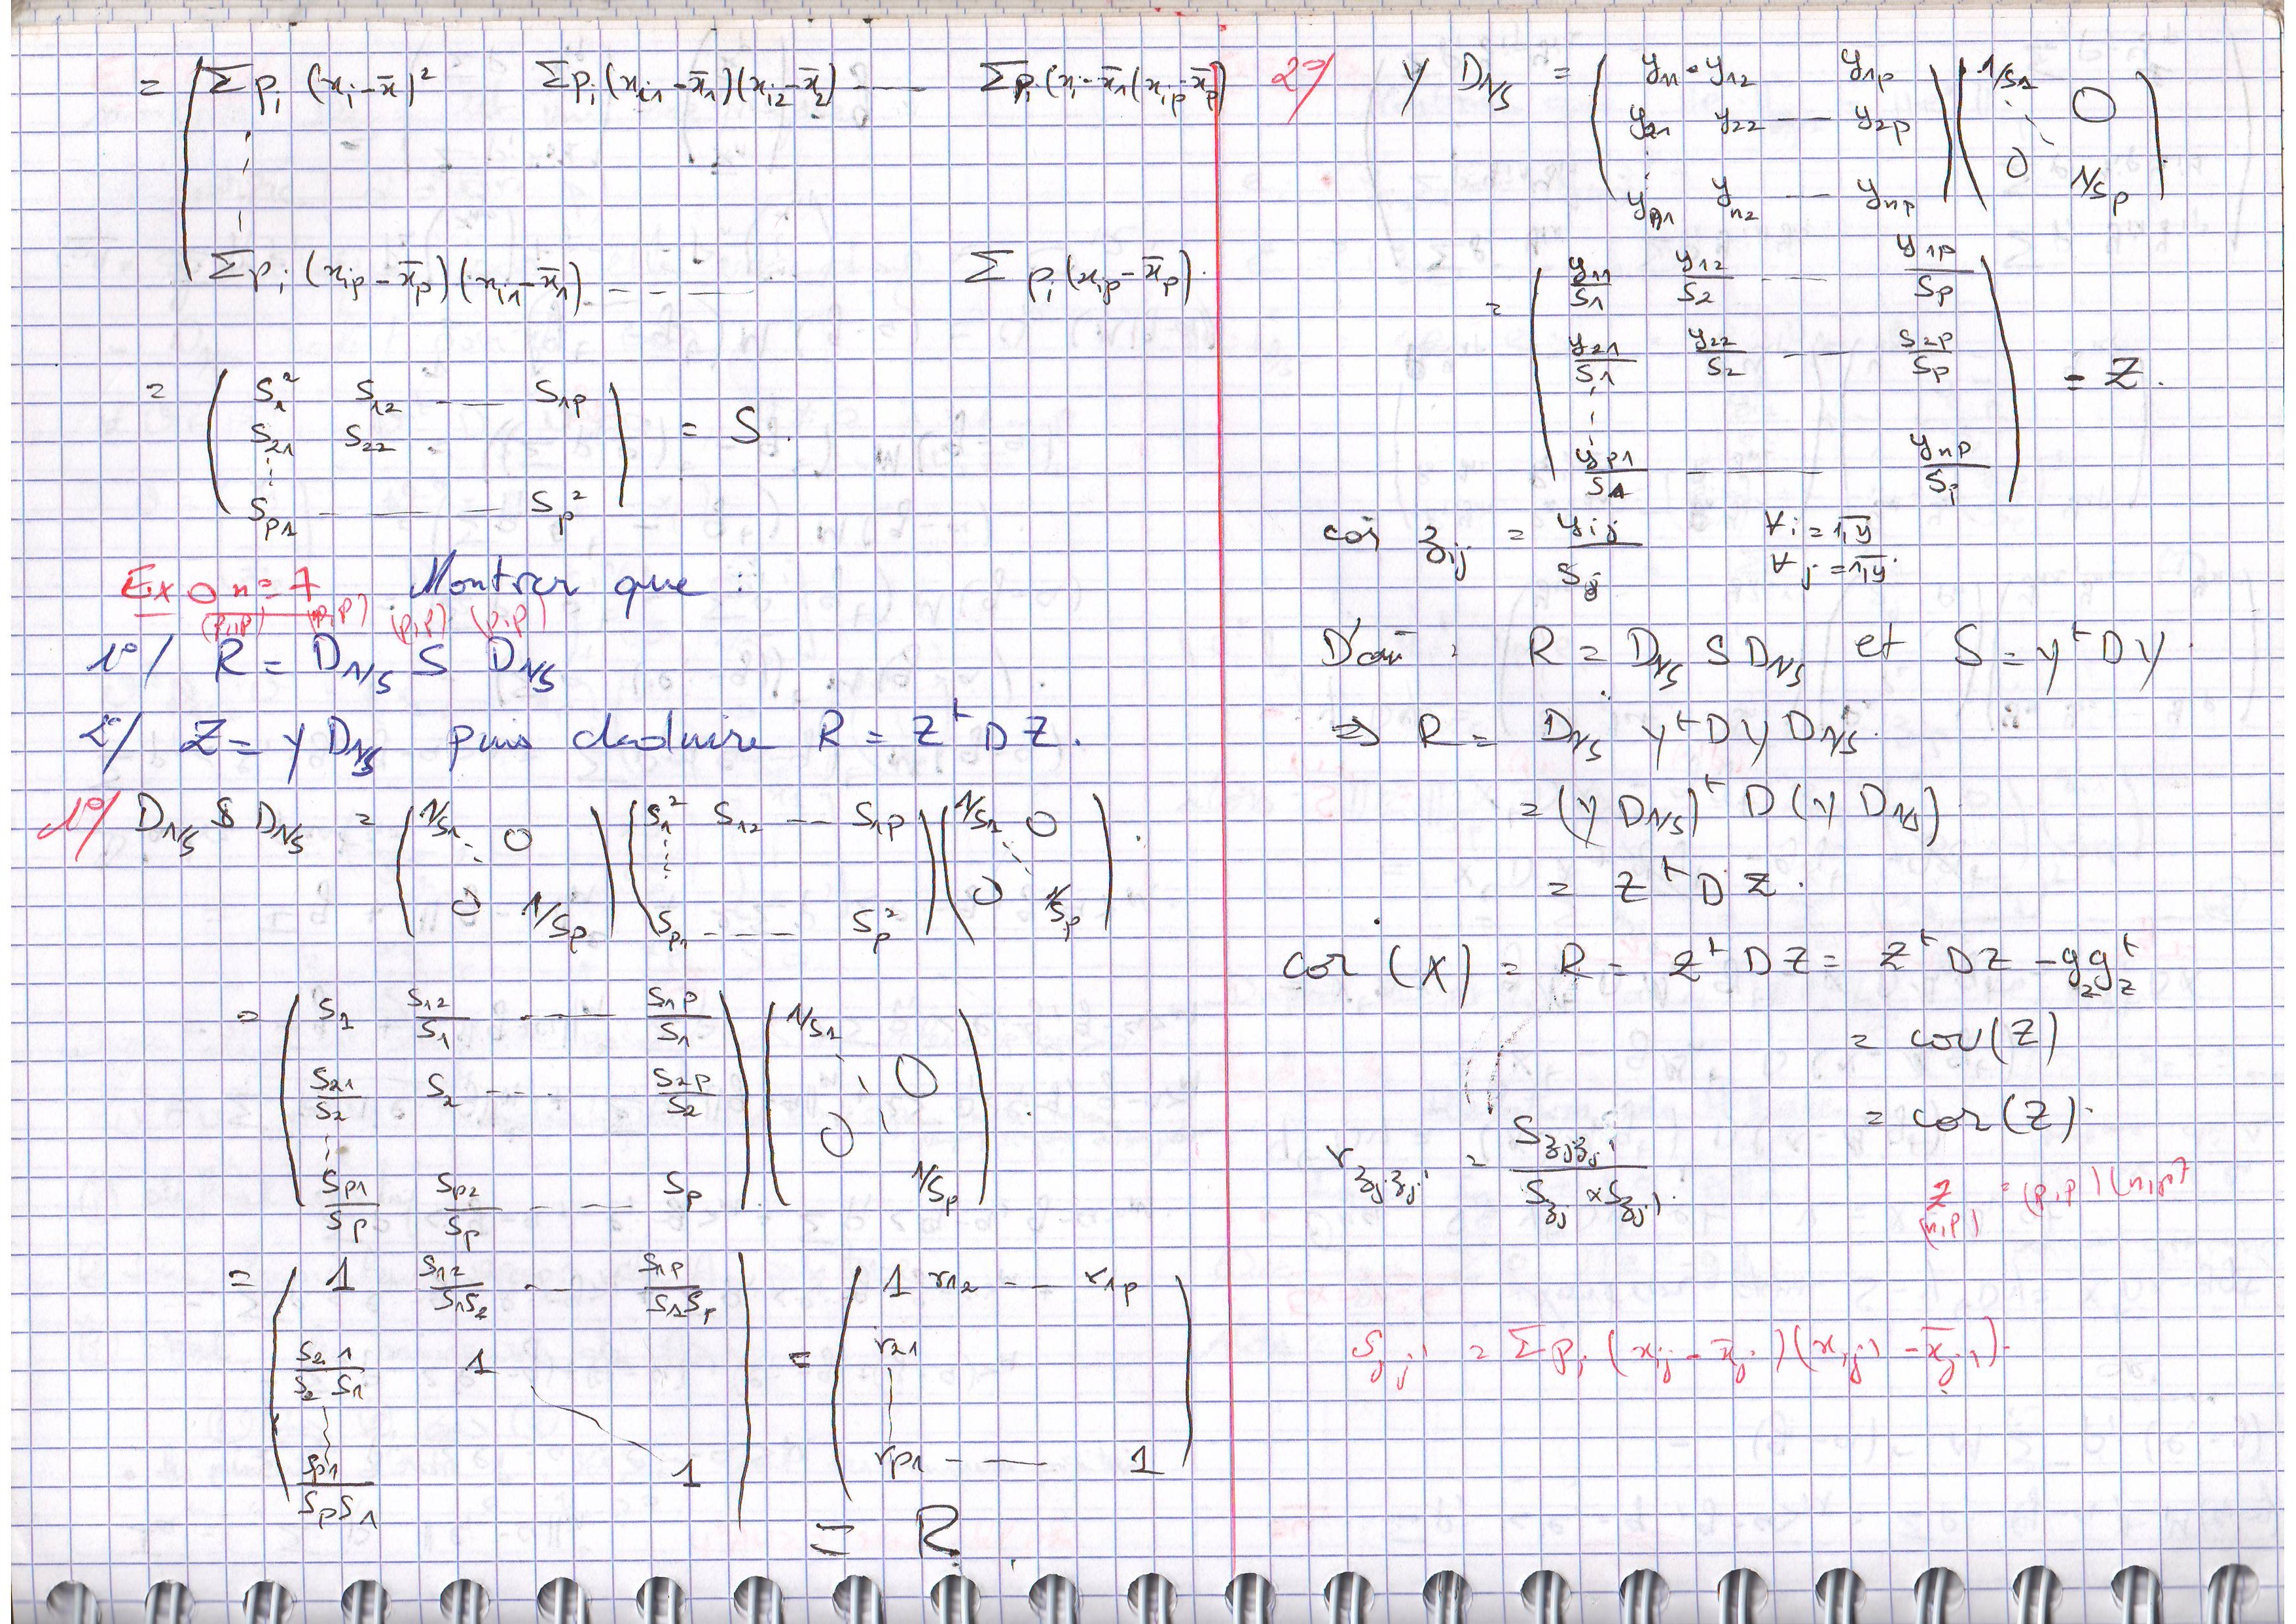 = ( Σ pᵢ (xᵢ - x̄)² Σ pᵢ (xᵢ₁ - x̄₁)(xᵢ₂ - x̄₂) --- Σ pᵢ (xᵢ - x̄₁(xᵢₚ - x̄ₚ)
⋮
Σ pᵢ (xᵢₚ - x̄ₚ)(xᵢ₁ - x̄₁) ----- Σ pᵢ (xᵢₚ - x̄ₚ).
= ( S₁² S₁₂ --- S₁ₚ
S₂₁ S₂₂
⋮
Sₚ₁ ------ Sₚ² ) = S.
Exo n = 7 Montrer que :
(p,p) (p,p) (p,p)
1°/ R = D₁/ₛ S D₁/ₛ
2°/ Z = Y D₁/ₛ puis deduire R = Zᵗ D Z.
1°/ D₁/ₛ S D₁/ₛ = ( 1/S₁ 0
0 1/Sₚ ) ( S₁² S₁₂ --- S₁ₚ
⋮
Sₚ₁ ---- Sₚ² ) ( 1/S₁ 0
0 1/Sₚ ).
= ( S₁ S₁₂/S₁ ---- S₁ₚ/S₁
S₂₁/S₂ S₂ --- S₂ₚ/S₂
⋮
Sₚ₁/Sₚ Sₚ₂/Sₚ ---- Sₚ ) ( 1/S₁ 0
0 1/Sₚ ).
= ( 1 S₁₂/S₁S₂ --- S₁ₚ/S₁Sₚ
S₂₁/S₂S₁ 1
⋮
Sₚ₁/SₚS₁ 1 ) = ( 1 r₁₂ --- r₁ₚ
r₂₁
⋮
rₚ₁ ---- 1 )
= R.
2°/ Y D₁/ₛ = ( y₁₁ y₁₂ y₁ₚ
y₂₁ y₂₂ --- y₂ₚ
⋮
yₙ₁ yₙ₂ --- yₙₚ ) ( 1/S₁ 0
0 1/Sₚ ).
= ( y₁₁/S₁ y₁₂/S₂ --- y₁ₚ/Sₚ
y₂₁/S₁ y₂₂/S₂ --- S₂ₚ/Sₚ
⋮
yₚ₁/S₁ ----- yₙₚ/Sⱼ ) = Z.
car zᵢⱼ = yᵢⱼ/Sⱼ ∀ i = 1,y
∀ j = 1,y.
D'où : R = D₁/ₛ S D₁/ₛ et S = Yᵗ D Y.
⇒ R = D₁/ₛ Yᵗ D Y D₁/ₛ.
= (Y D₁/ₛ)ᵗ D (Y D₁/ₛ)
= Zᵗ D Z.
cor (X) = R = Zᵗ D Z = Zᵗ D Z - g_z g_zᵗ
= cov(Z)
= cor(Z).
r_zⱼzⱼ' = S_zⱼzⱼ' / S_zⱼ × S_zⱼ'.
Z = (p,p) (n,p)
(n,p)
Sⱼⱼ' = Σ pᵢ (xᵢⱼ - x̄ⱼ)(xᵢⱼ' - x̄ⱼ').